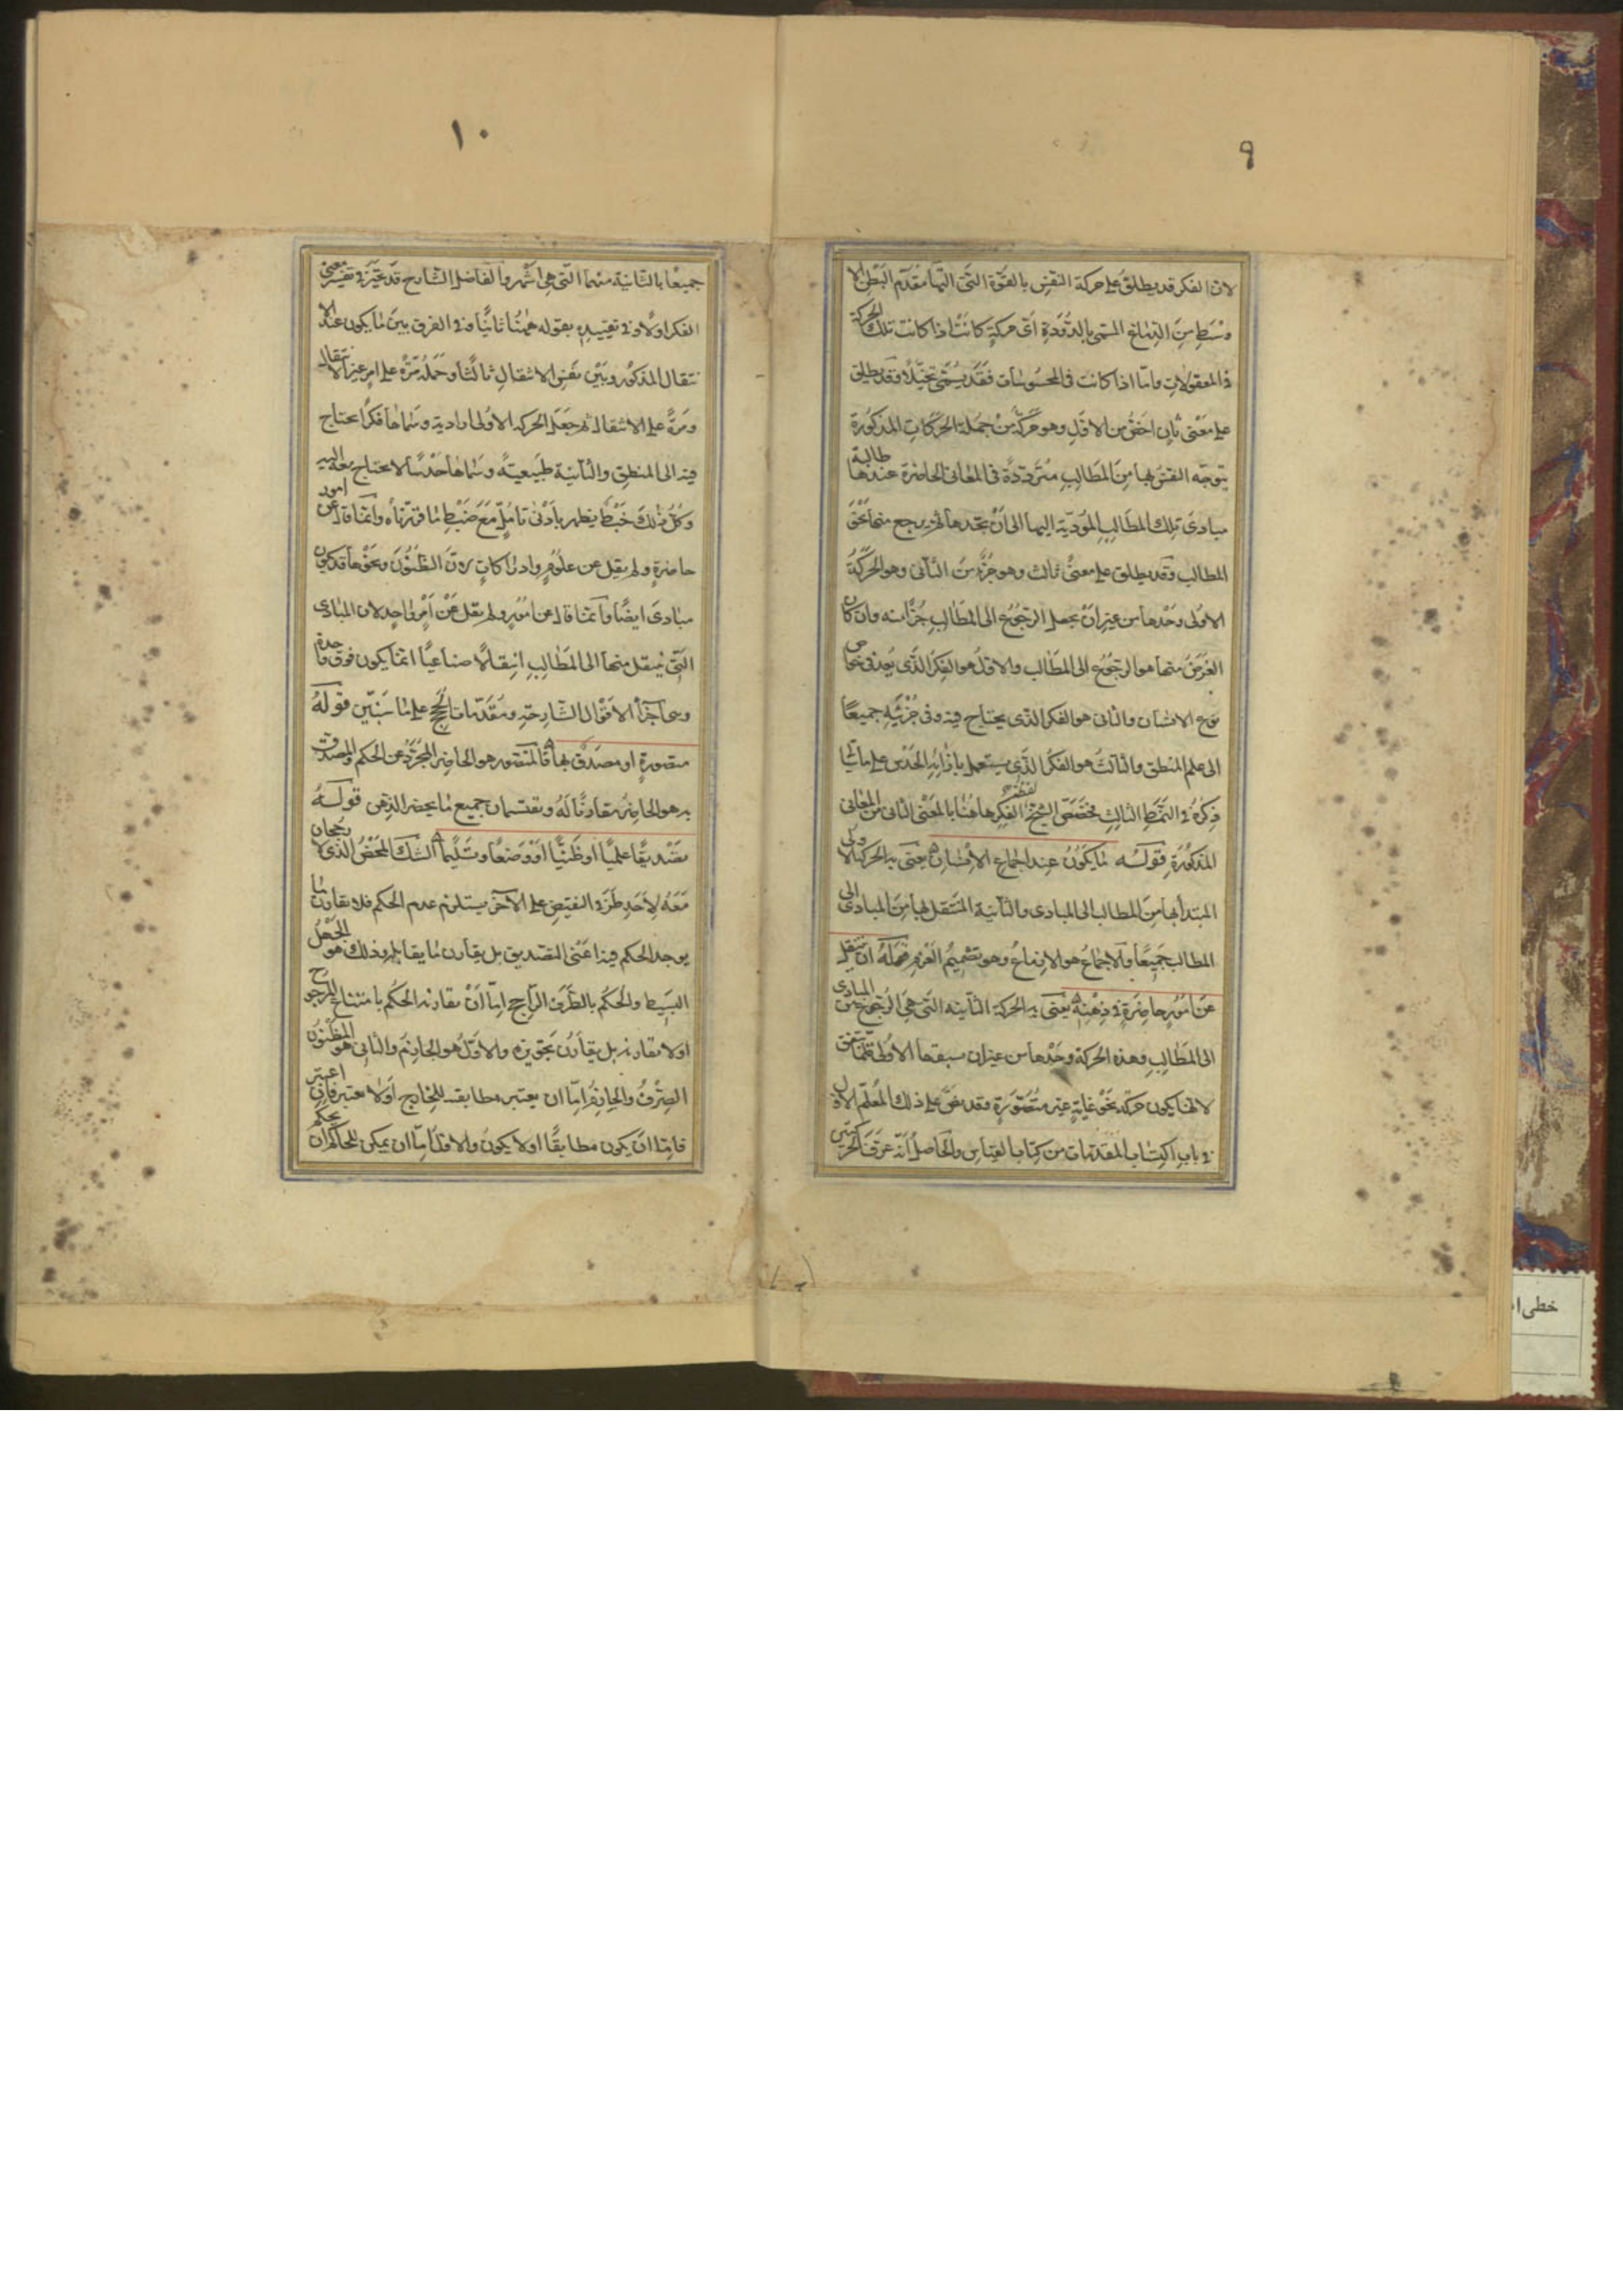 ٩
لان الفكر قد يطلق على حركة النفس بالقوة التى التها مقدم البطن الا
وسط من الدماغ المسمى بالدودة اى حركة كانت اذا كانت تلك الحركة
فى المعقولات واما اذا كانت فى المحسوسات فقد يسمى تخيلا وقد يطلق
على معنى ثان اخص من الاول وهو حركة من جملة الحركات المذكورة
يتوجه النفس بها من المطالب مترددة فى المعانى الحاضرة عندها طالبة
مبادى تلك المطالب المودية اليها الى ان تجدها ثم يرجع منها نحو
المطالب وقد يطلق على معنى ثالث وهو جزء من الثانى وهو الحركة
الاولى وحدها من غير ان يجعل الرجوع الى المطالب جزأ منه وان كان
الغرض منها هو الرجوع الى المطالب والاول هو الفكر الذى يعد فى خواص
نوع الانسان والثانى هو الفكر الذى يحتاج فيه وفى جزئيه جميعا
الى علم المنطق والثالث هو الفكر الذى يستعمل بازائه الحدس على ما ياتى
ذكره فى النمط الثالث فخصص الشيخ لفظة الفكر هاهنا بالمعنى الثانى من المعانى
المذكورة قوله ما يكون عند اجماع الانسان يعنى به الحركة الاولى
المبتدأ بها من المطالب الى المبادى والثانية المنتقل بها من المبادى الى
المطالب جميعا والاجماع هو الازماع وهو تصميم العزم قوله ان ينتقل
عن امور حاضرة فى ذهنه يعنى به الحركة الثانية التى هى الرجوع من المبادى
الى المطالب وهذه الحركة وحدها من غير ان سبقها الاولى قلما يتفق
لانها يكون حركة نحو غاية غير متصورة وقد نص على ذلك المعلم الاول
فى باب اكتساب المقدمات من كتاب القياس والحاصل انه عرف الحركتين
١٠
جميعا بالثانية منهما التى هى اشهر والفاضل الشارح قد تحير فى تفسير معنى
الفكر اولا وفى تقييده بقوله ههنا ثانيا وفى الفرق بين ما يكون عند الا
نتقال المذكور وبين نفس الانتقال ثالثا وحمله مرة على امر غير الانتقال
ومرة على الانتقال ثم جعل الحركة الاولى ارادية وسماها فكرا يحتاج
فيه الى المنطق والثانية طبيعية وسماها حدسا لا يحتاج معه اليه
وكل ذلك خبط يظهر بادنى تامل مع ضبط ما قررناه وانما قال عن امور
حاضرة ولم يقل عن علوم وادراكات لان الظنون ونحوها قد يكون
مبادى ايضا وانما قال عن امور ولم يقل عن امر واحد لان المبادى
التى ينتقل منها الى المطالب انتقالا صناعيا انما يكون فوق واحدة
وهى اجزأ الاقوال الشارحة ومقدمات الحجج على ما سنبين قوله
متصورة او مصدق بها فالمتصور هو الحاضر المجرد عن الحكم والمصدق
به هو الحاضر مقارنا له ويقتسمان جميع ما يحضر الذهن قوله
تصديقا علميا او ظنيا او وضعا وتسليما الشك المحض الذى لا رجحان
معه لاحد طرفى النقيض على الآخر يستلزم عدم الحكم فلا يقارن ما
يوجد الحكم فيه اعنى التصديق بل يقارن ما يقابله وذلك هو الجهل
البسيط والحكم بالطرف الراجح اما ان يقارنه الحكم بامتناع المرجوح
او لا يقارنه بل يقارن تجويزه والاول هو الجازم والثانى هو المظنون
الصرف والجازم اما ان يعتبر مطابقته للخارج او لا يعتبر فان اعتبر
فاما ان يكون مطابقا او لا يكون والاول اما ان يمكن للحاكم ان يحكم
خطى